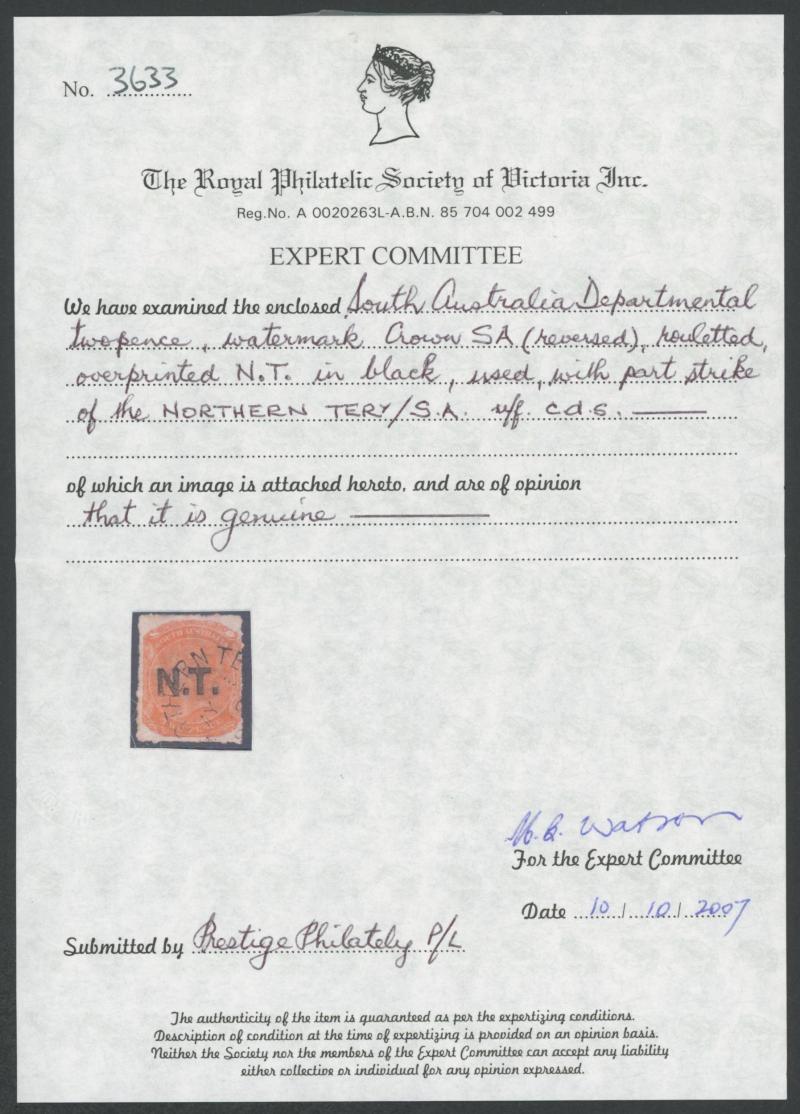 No. 3633
The Royal Philatelic Society of Victoria Inc.
Reg.No. A 0020263L-A.B.N. 85 704 002 499
EXPERT COMMITTEE
We have examined the enclosed South Australia Departmental
twopence, watermark Crown SA (reversed), rouletted,
overprinted N.T. in black, used, with part strike
of the NORTHERN TERY/S.A. uff. cds.
of which an image is attached hereto, and are of opinion
that it is genuine
SOUTH AUSTRALIA
THERN TE
N.T.
Watson
For the Expert Committee
Date 10/10/2007
Submitted by Prestige Philately P/L
The authenticity of the item is guaranteed as per the expertizing conditions.
Description of condition at the time of expertizing is provided on an opinion basis.
Neither the Society nor the members of the Expert Committee can accept any liability
either collective or individual for any opinion expressed.